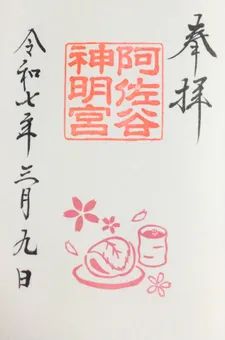 奉拝
阿佐谷
神明宮
令和七年三月九日